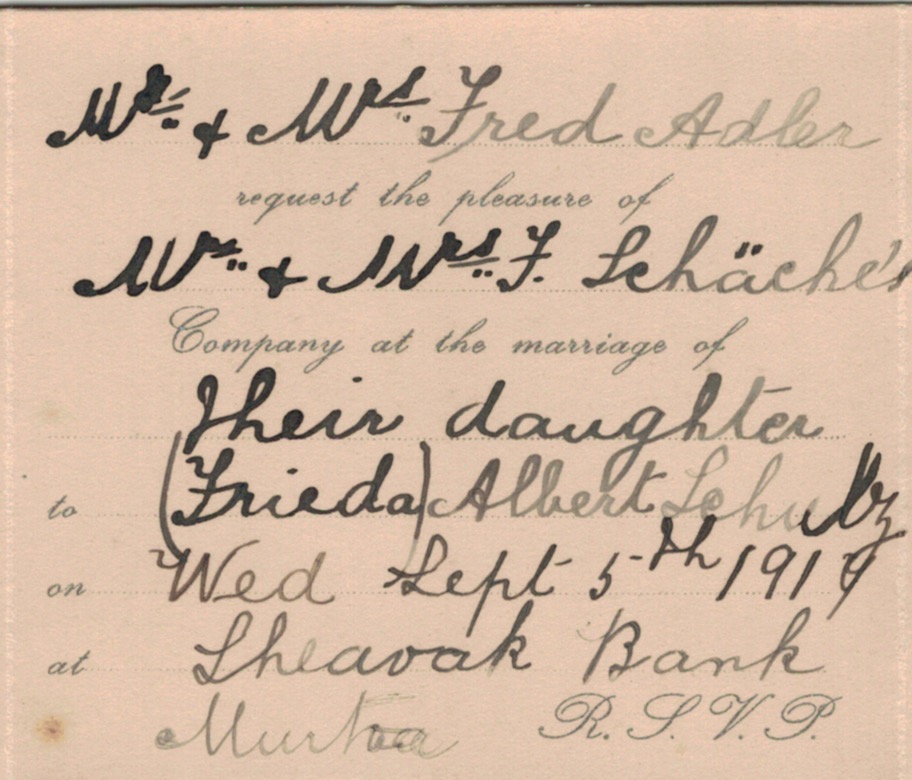 Mr. & Mrs. Fred Adler
request the pleasure of
Mr. & Mrs. F. Schäche's
Company at the marriage of
their daughter
to (Frieda) Albert Schultz
on Wed Sept 5th 1917
at Sheaoak Bank
Murtoa R. S. V. P.